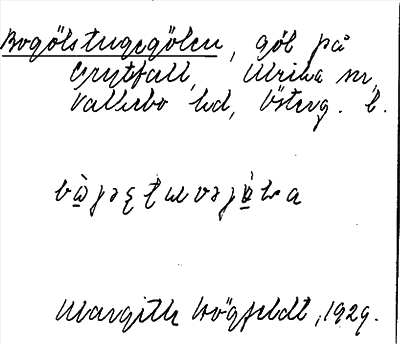 Bogölstugegölen, göl på
Grytfall, Ulrika sn,
Valkebo hd, Österg. l.
Margith Högfeldt, 1929.